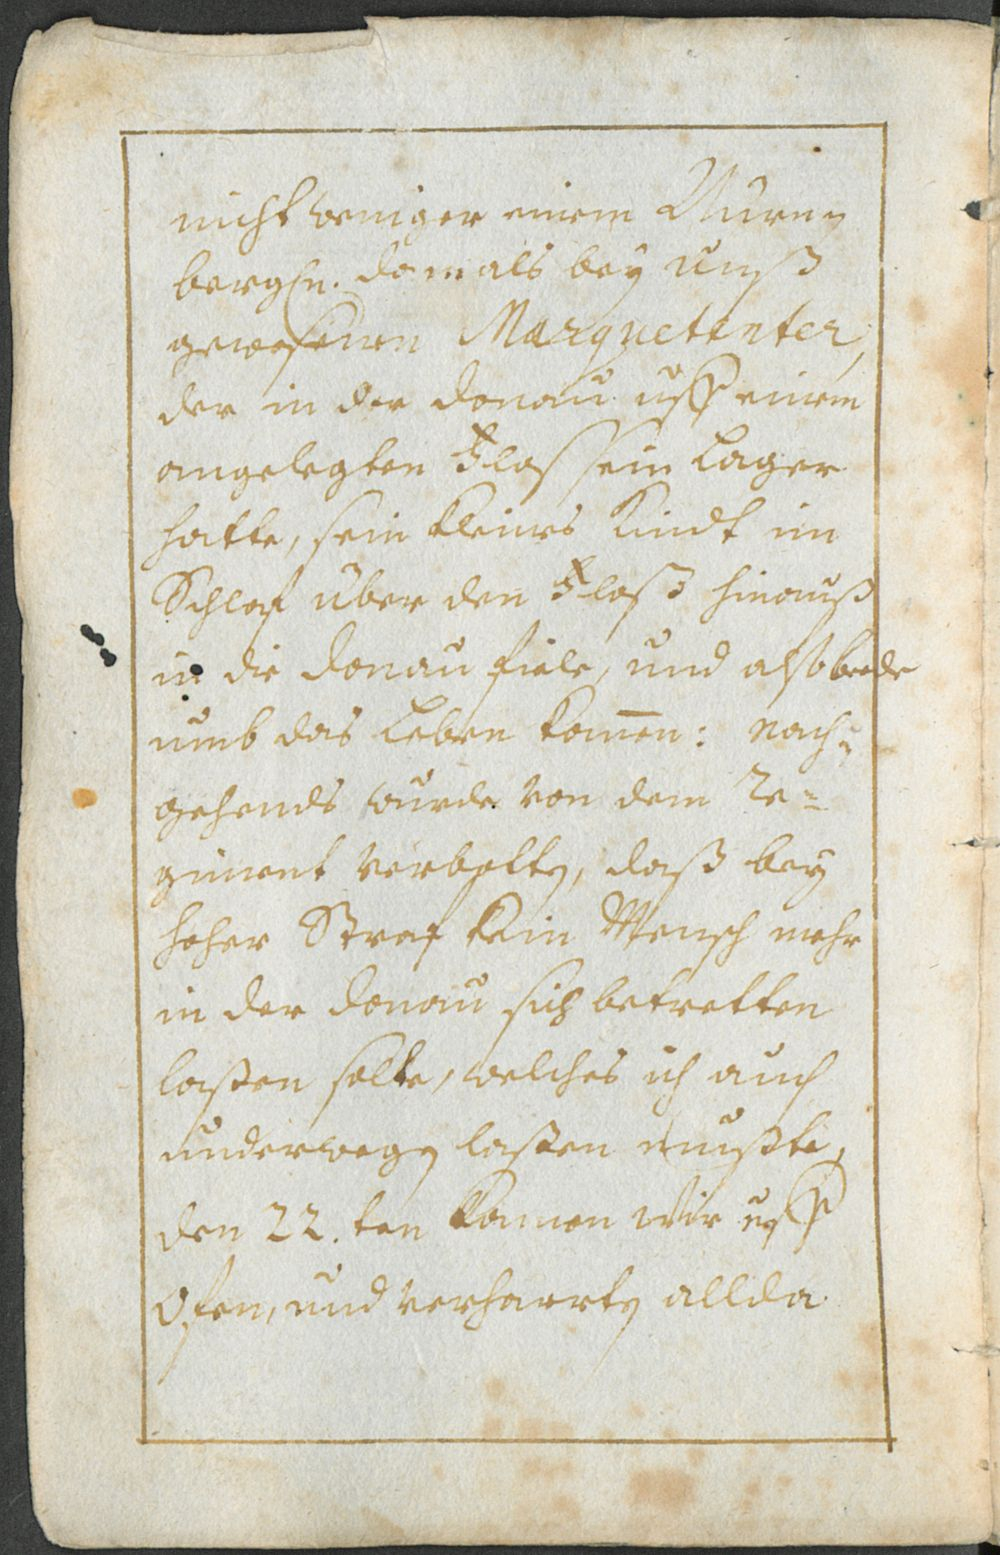 nicht weniger einem Nürn=
bergsn. damals bey unß
gewesenen Marquetenter,
der in der Donau uff einem
angelegten Flos sein Lager
hatte, sein kleines Kindt im
Schlaf über den Floß hinauß
in die Donau fiele, und also beede
umb das Leben kamen: nach=
gehends wurde von dem Re=
giment verbotten, daß bey
hoher Straf kein Mensch mehr
in der Donau sich betretten
laßen solte, welches ich auch
underwegen laßen mußte,
den 22.ten kamen wir uff
Ofen, und verharrten allda